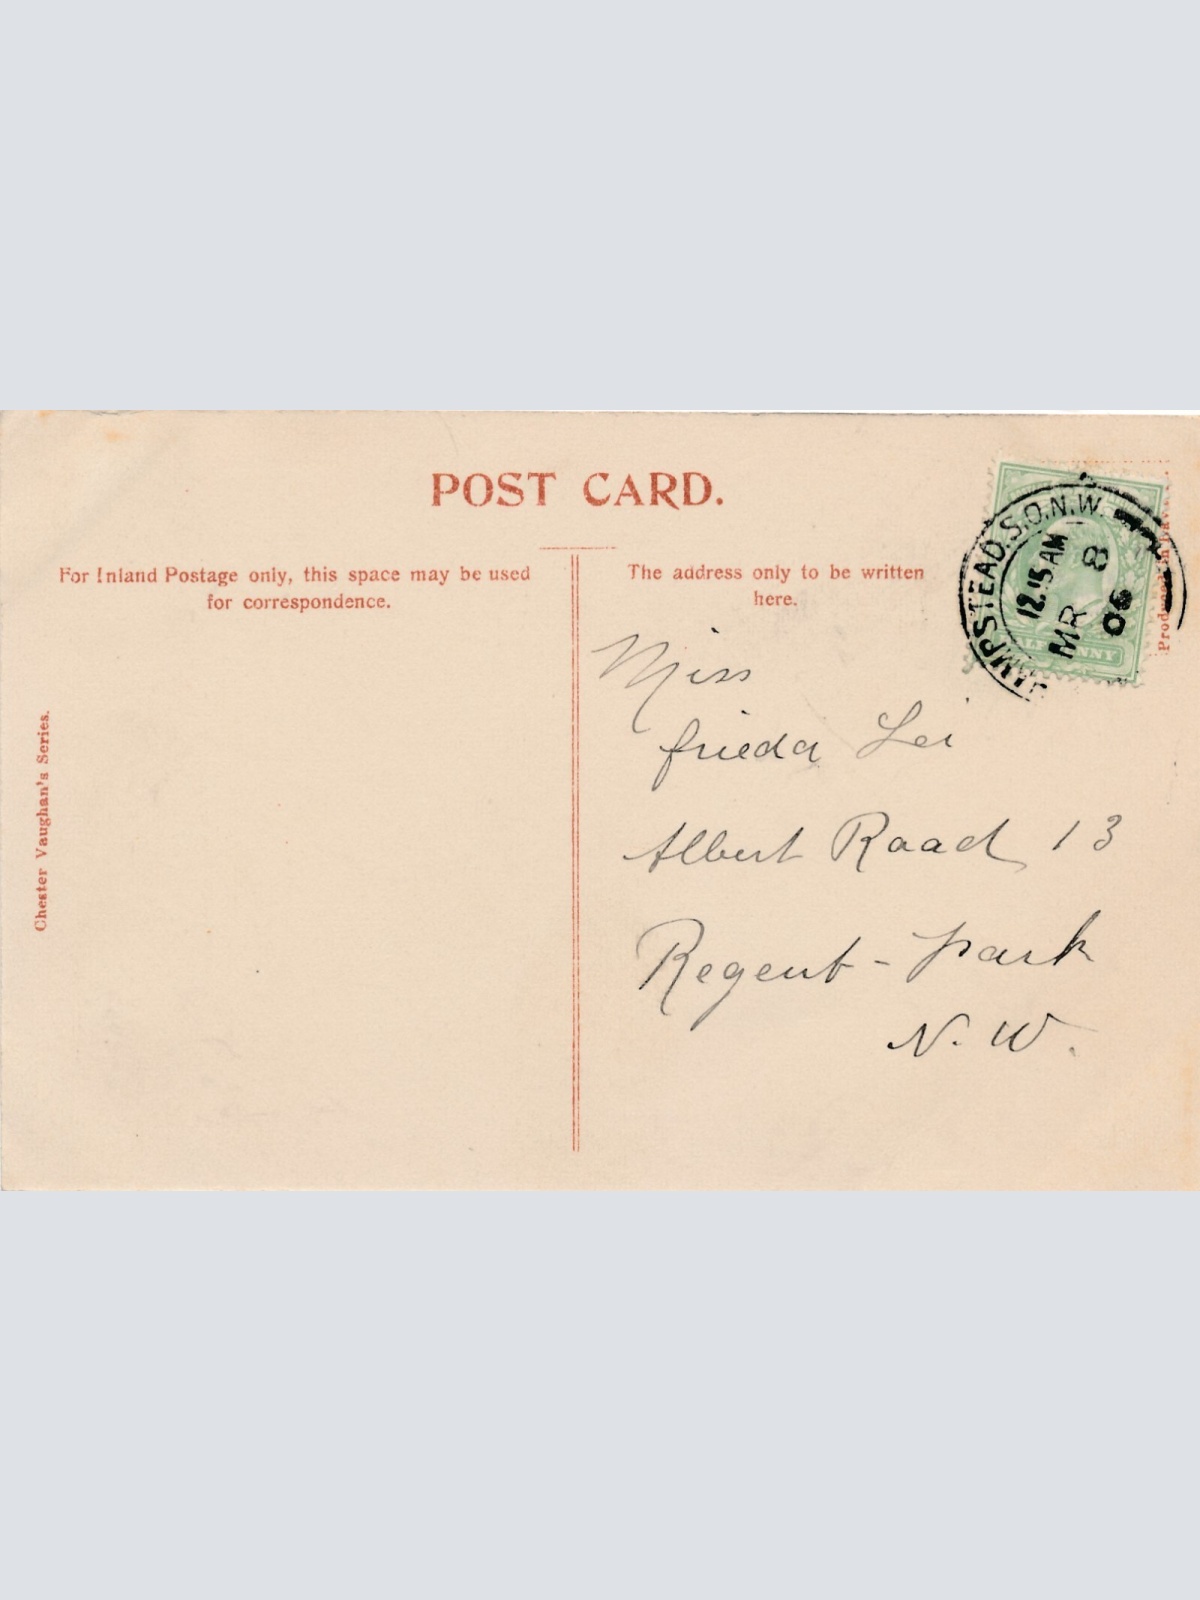 POST CARD.
For Inland Postage only, this space may be used
for correspondence.
The address only to be written
here.
Miss
frieda Lei
Albert Road 13
Regent - park
N. W.
Chester Vaughan's Series.
HAMPSTEAD.S.O.N.W.
12.15 AM
MR 8
06